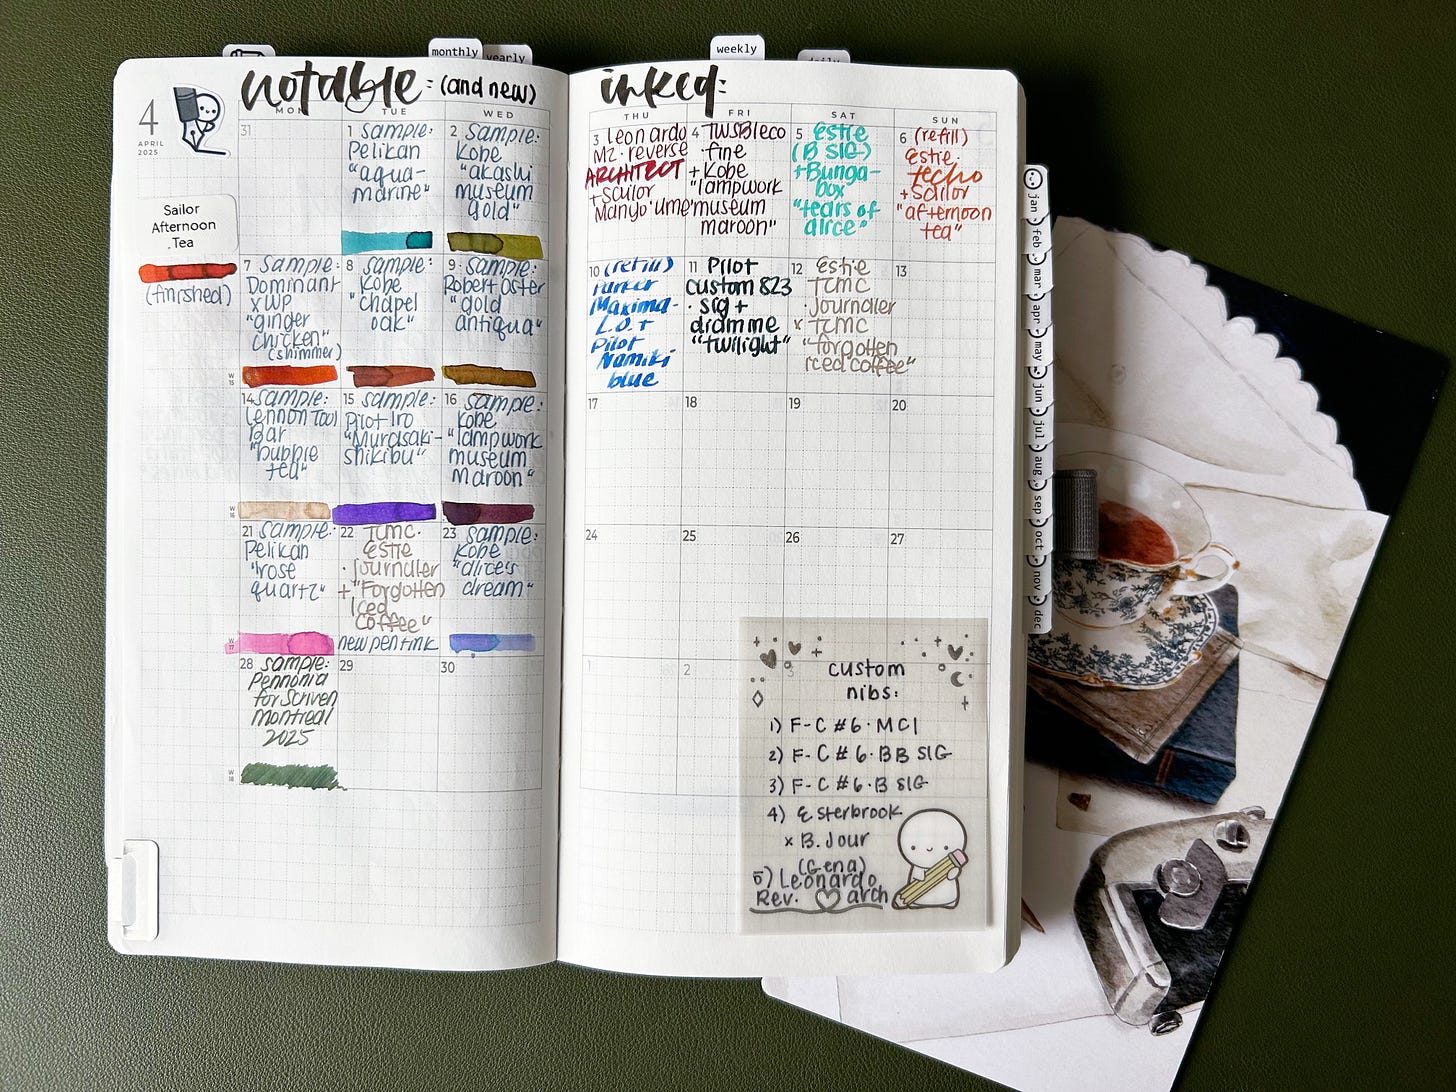 monthly
yearly
weekly
daily
notable: (and new)
inked:
4
APRIL
2025
MON
TUE
WED
THU
FRI
SAT
SUN
31
1 Sample:
Pelikan
"aqua-
marine"
2 Sample:
Kobe
"akashi
museum
gold"
3 Leonardo
MZ · reverse
ARCHITECT
+ Sailor
Manyo 'ume'
4 TWSBI eco
· fine
+ Kobe
"lampwork
museum
maroon"
5 Estie
(B SIG)
+ Bunga-
box
"tears of
alice"
6 (refill)
Estie ·
techo
+ Sailor
"afternoon
tea"
Sailor
Afternoon
Tea
(finished)
7 Sample:
Dominant
x WP
"ginger
chicken"
(shimmer)
8 Sample:
Kobe
"chapel
oak"
9 Sample:
Robert Oster
"gold
antiqua"
10 (refill)
Parker
Maxima-
L.O. +
Pilot
Namiki
blue
11 Pilot
custom 823
· sig +
diamine
"twilight"
12 Estie
TCMC
· Journaler
x TCMC
"forgotten
iced coffee"
13
W
15
14 Sample:
Lennon Tool
Bar
"bubble
tea"
15 Sample:
Pilot Iro
"Murasaki-
shikibu"
16 Sample:
Kobe
"lampwork
museum
maroon"
17
18
19
20
W
16
21 Sample:
Pelikan
"rose
quartz"
22 TCMC ·
Estie
· Journaler
+ "Forgotten
Iced
Coffee"
new pen + ink
23 Sample:
Kobe
"alice's
dream"
24
25
26
27
W
17
28 Sample:
Pennonia
for Scriven
Montreal
2025
29
30
1
2
3
W
18
custom
nibs:
1) F-C #6 · MCI
2) F-C #6 · BB SIG
3) F-C #6 · B SIG
4) Esterbrook
x B. Jour
(Gena)
5) Leonardo
Rev. arch
jan
feb
mar
apr
may
jun
jul
aug
sep
oct
nov
dec